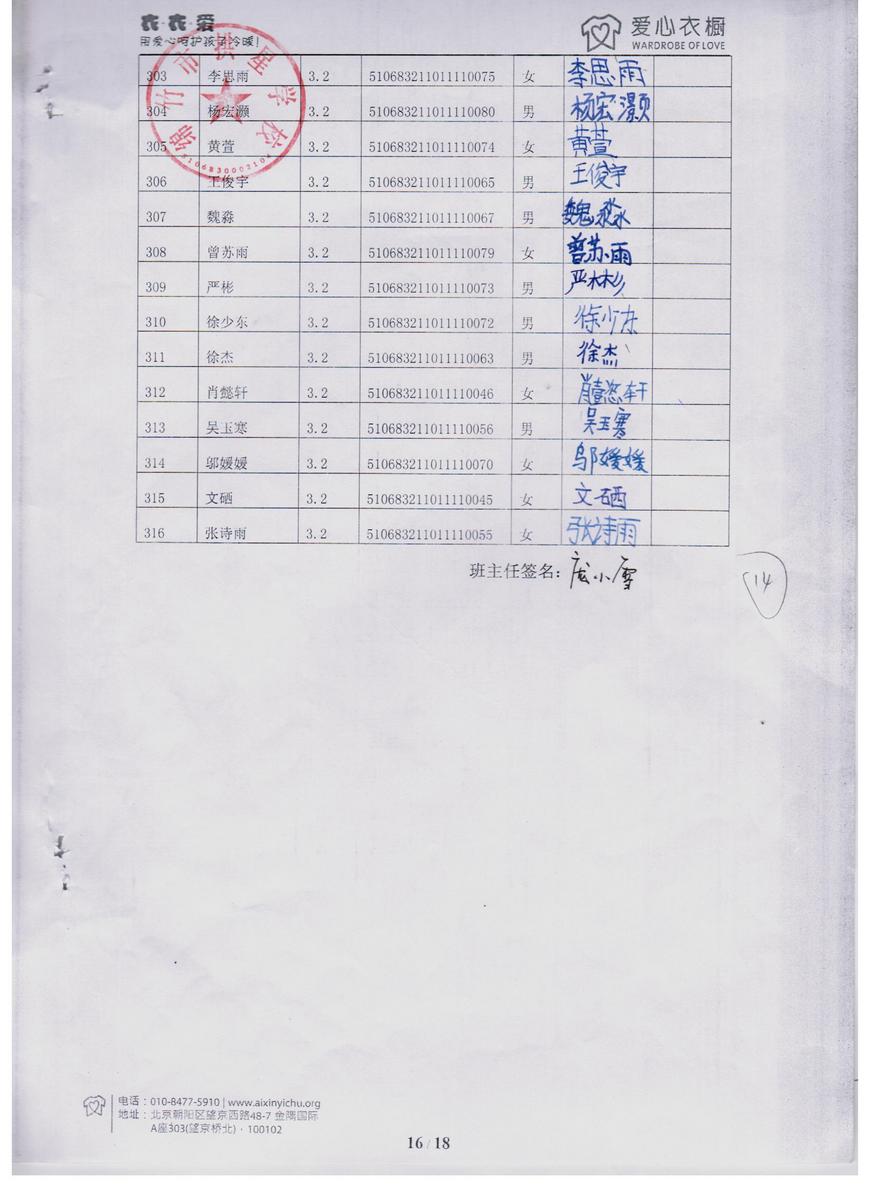 衣·衣·爱
用爱心呵护孩子冷暖!
爱心衣橱
WARDROBE OF LOVE
绵竹市拱星学校
5106830002104
303 李思雨 3.2 510683211011110075 女 李思雨
304 杨宏灏 3.2 510683211011110080 男 杨宏灏
305 黄萱 3.2 510683211011110074 女 黄萱
306 王俊宇 3.2 510683211011110065 男 王俊宇
307 魏淼 3.2 510683211011110067 男 魏淼
308 曾苏雨 3.2 510683211011110079 女 曾苏雨
309 严彬 3.2 510683211011110073 男 严彬
310 徐少东 3.2 510683211011110072 男 徐少东
311 徐杰 3.2 510683211011110063 男 徐杰
312 肖懿轩 3.2 510683211011110046 女 肖懿轩
313 吴玉寒 3.2 510683211011110056 男 吴玉寒
314 邬媛媛 3.2 510683211011110070 女 邬媛媛
315 文硒 3.2 510683211011110045 女 文硒
316 张诗雨 3.2 510683211011110055 女 张诗雨
班主任签名: 庞小雪
14
电话:010-8477-5910 | www.aixinyichu.org
地址:北京朝阳区望京西路48-7 金隅国际
A座303(望京桥北)·100102
16 / 18